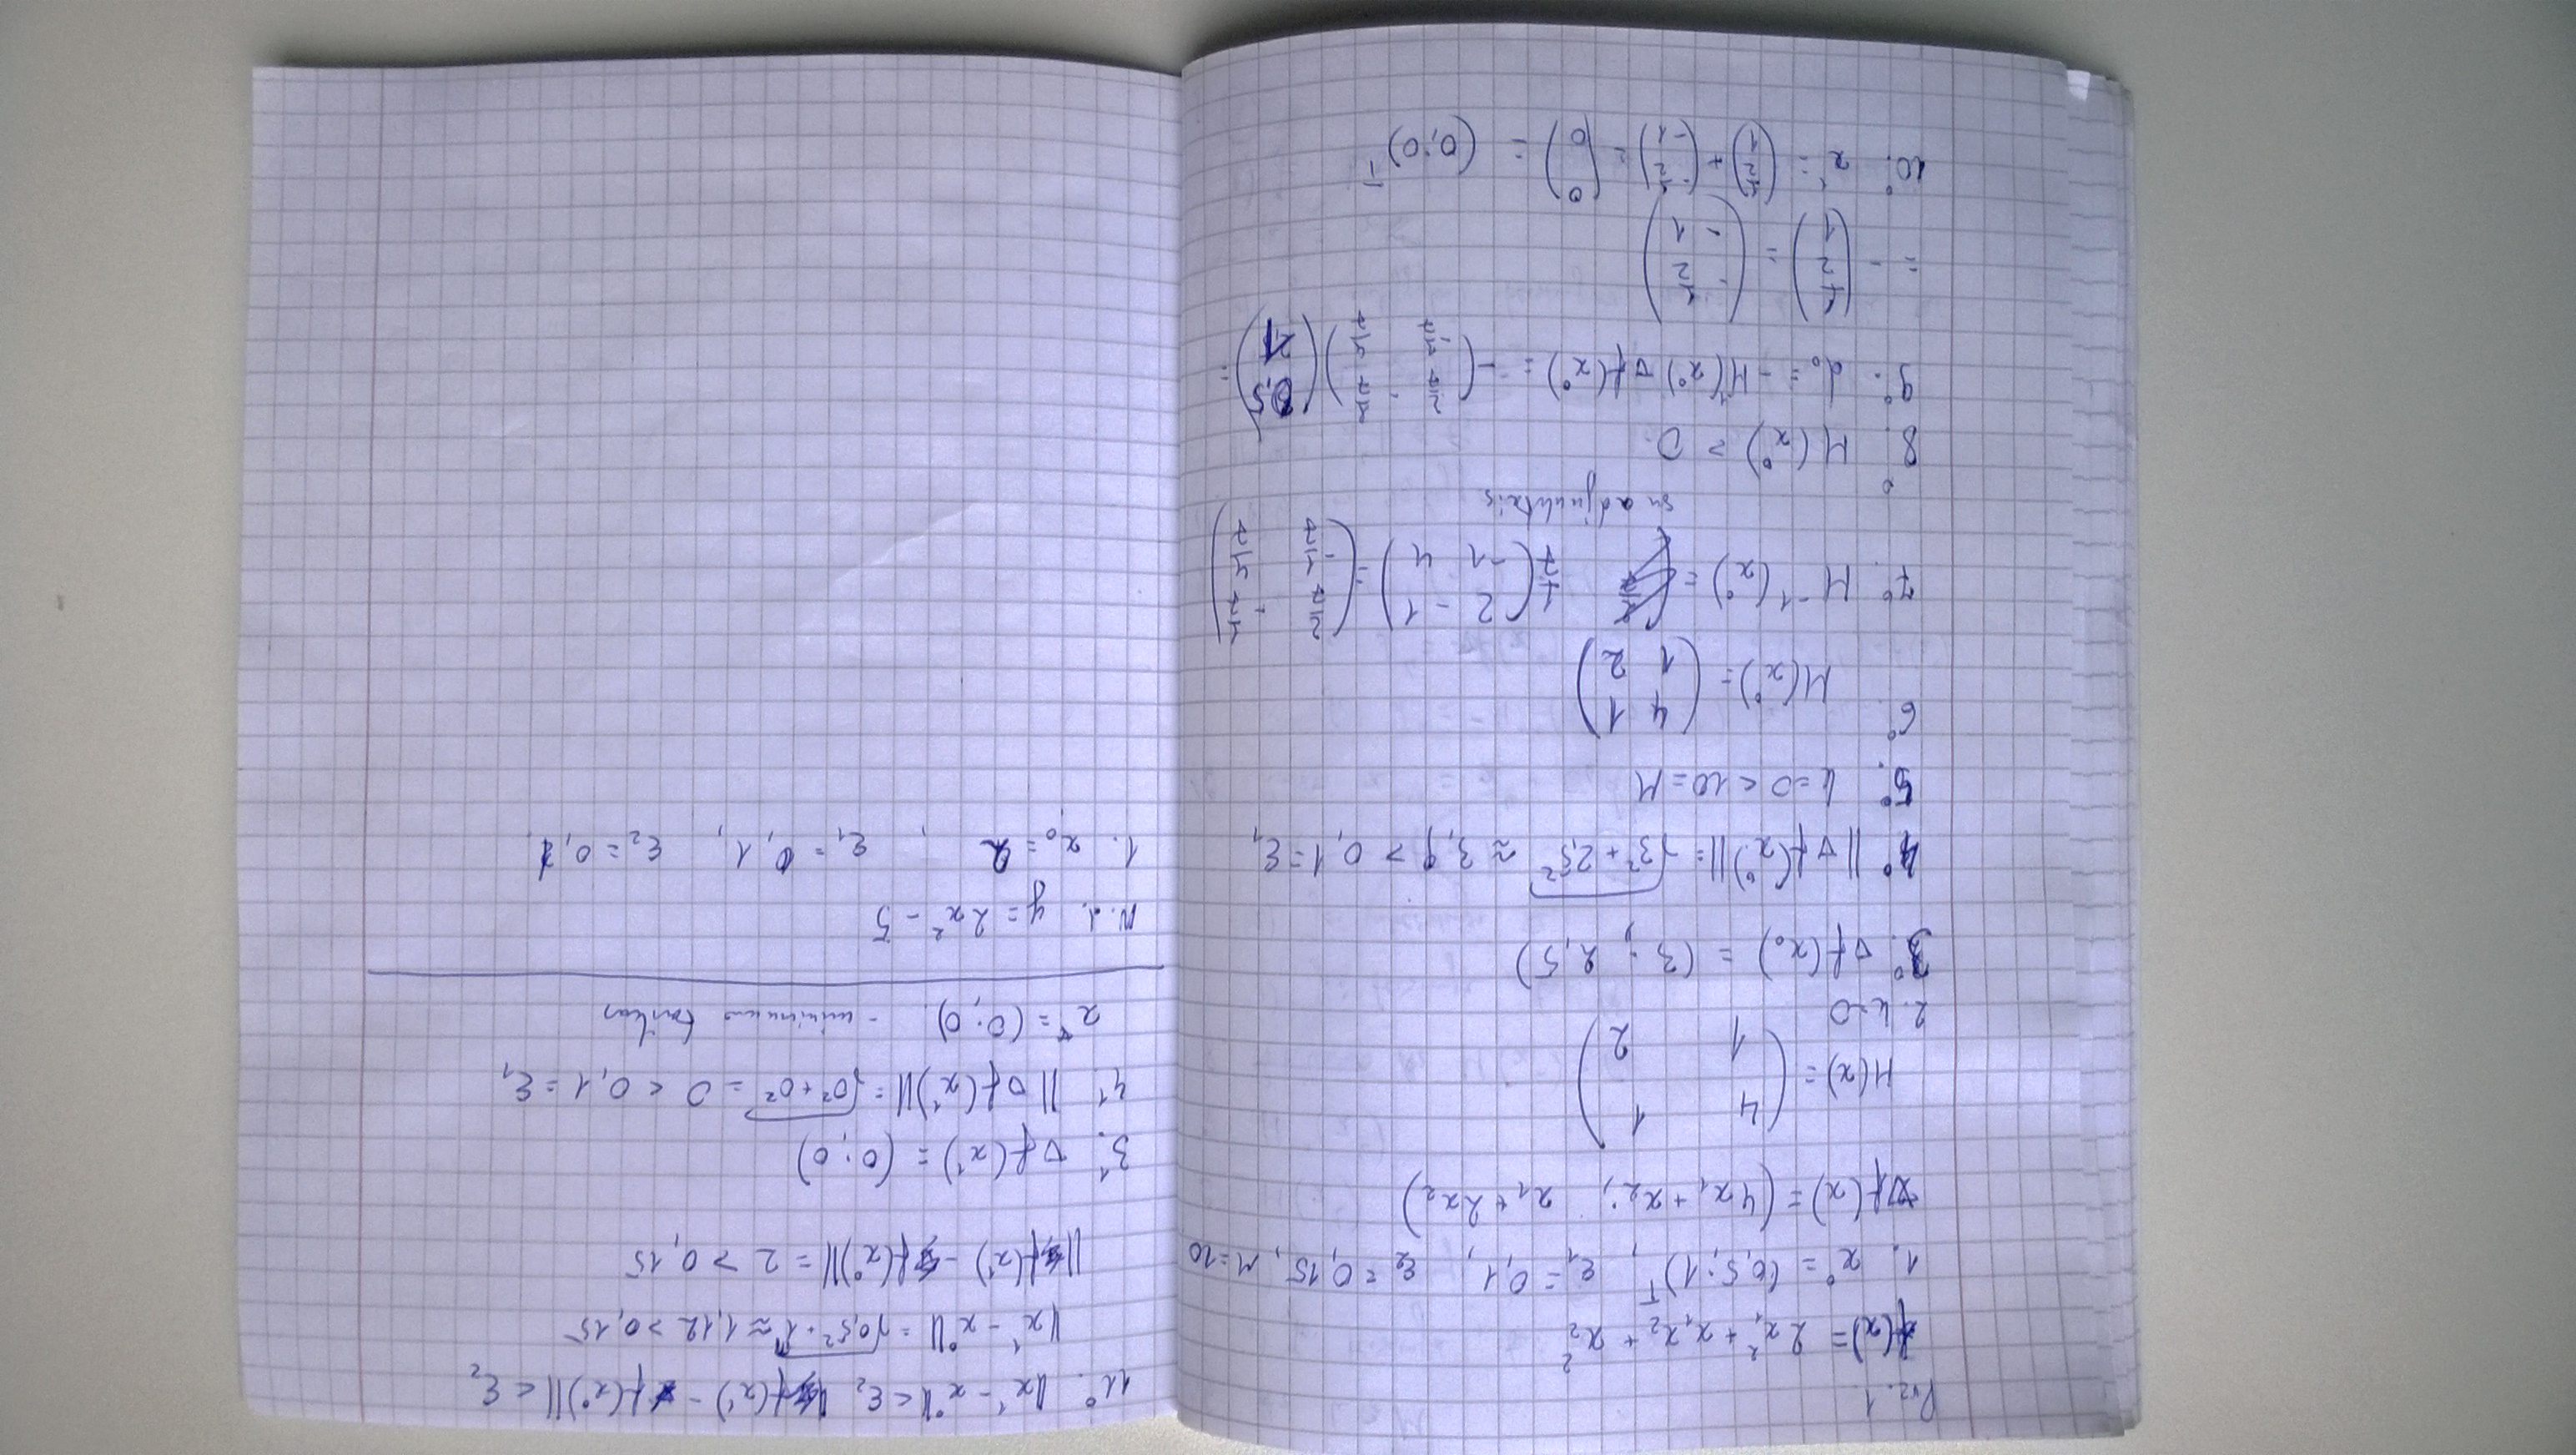 Pvz. 1.
f(x) = 2x₁² + x₁x₂ + x₂²
1. x⁰ = (0,5; 1)ᵀ, ε₁ = 0,1, ε₂ = 0,15, M=10
∇f(x) = (4x₁ + x₂; x₁ + 2x₂)
H(x) = (4 1
1 2)
2. k=0
3⁰. ∇f(x₀) = (3; 2,5)
4⁰ ||∇f(x⁰)|| = √(3² + 2,5²) ≈ 3,9 > 0,1 = ε₁
5⁰. k=0 < 10 = M
6⁰. H(x⁰) = (4 1
1 2)
7⁰. H⁻¹(x⁰) = 1/7 (2 -1
-1 4) = (2/7 -1/7
-1/7 4/7)
su adjunktais
8⁰. H(x⁰) > 0.
9⁰. d₀ = -H⁻¹(x⁰) ∇f(x⁰) = -(2/7 -1/7
-1/7 4/7)(0,5
1) =
= -(1/2
1) = (-1/2
-1)
10⁰. x¹ = (1/2
1) + (-1/2
-1) = (0
0) = (0; 0)ᵀ
11⁰. ||x¹ - x⁰|| < ε₂ ||f(x¹) - f(x⁰)|| < ε₂
||x¹ - x⁰|| = √(0,5² + 1²) ≈ 1,12 > 0,15
||f(x¹) - f(x⁰)|| = 2 > 0,15
3¹. ∇f(x¹) = (0; 0)
4¹ ||∇f(x¹)|| = √(0² + 0²) = 0 < 0,1 = ε₁
x* = (0; 0). - minimumo taškas
N.d. y = 2x² - 5
1. x₀ = 2, ε₁ = 0,1, ε₂ = 0,1.